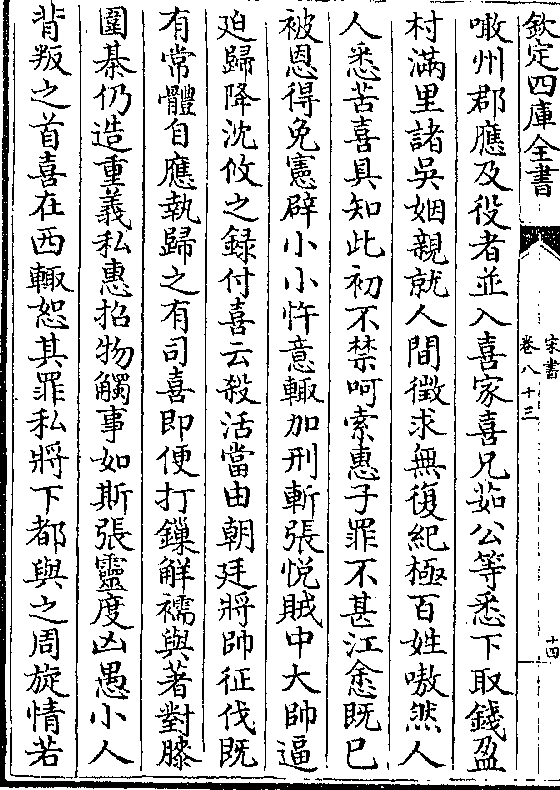 欽定四庫全書
宋書
卷八十三
十四
噉州郡應及役者並入喜家喜兄茹公等悉下取錢盈
村滿里諸吳姻親就人間徵求無復紀極百姓嗷然人
人悉苦喜具知此初不禁呵索惠子罪不甚江悆既已
被恩得免憲辟小小忤意輒加刑斬張悅賊中大帥逼
迫歸降沈攸之録付喜云殺活當由朝廷將帥征伐既
有常體自應執歸之有司喜即便打鏁解襦與著對膝
圍棊仍造重義私惠招物觸事如斯張靈度凶愚小人
背叛之首喜在西輙恕其罪私將下都與之周旋情若